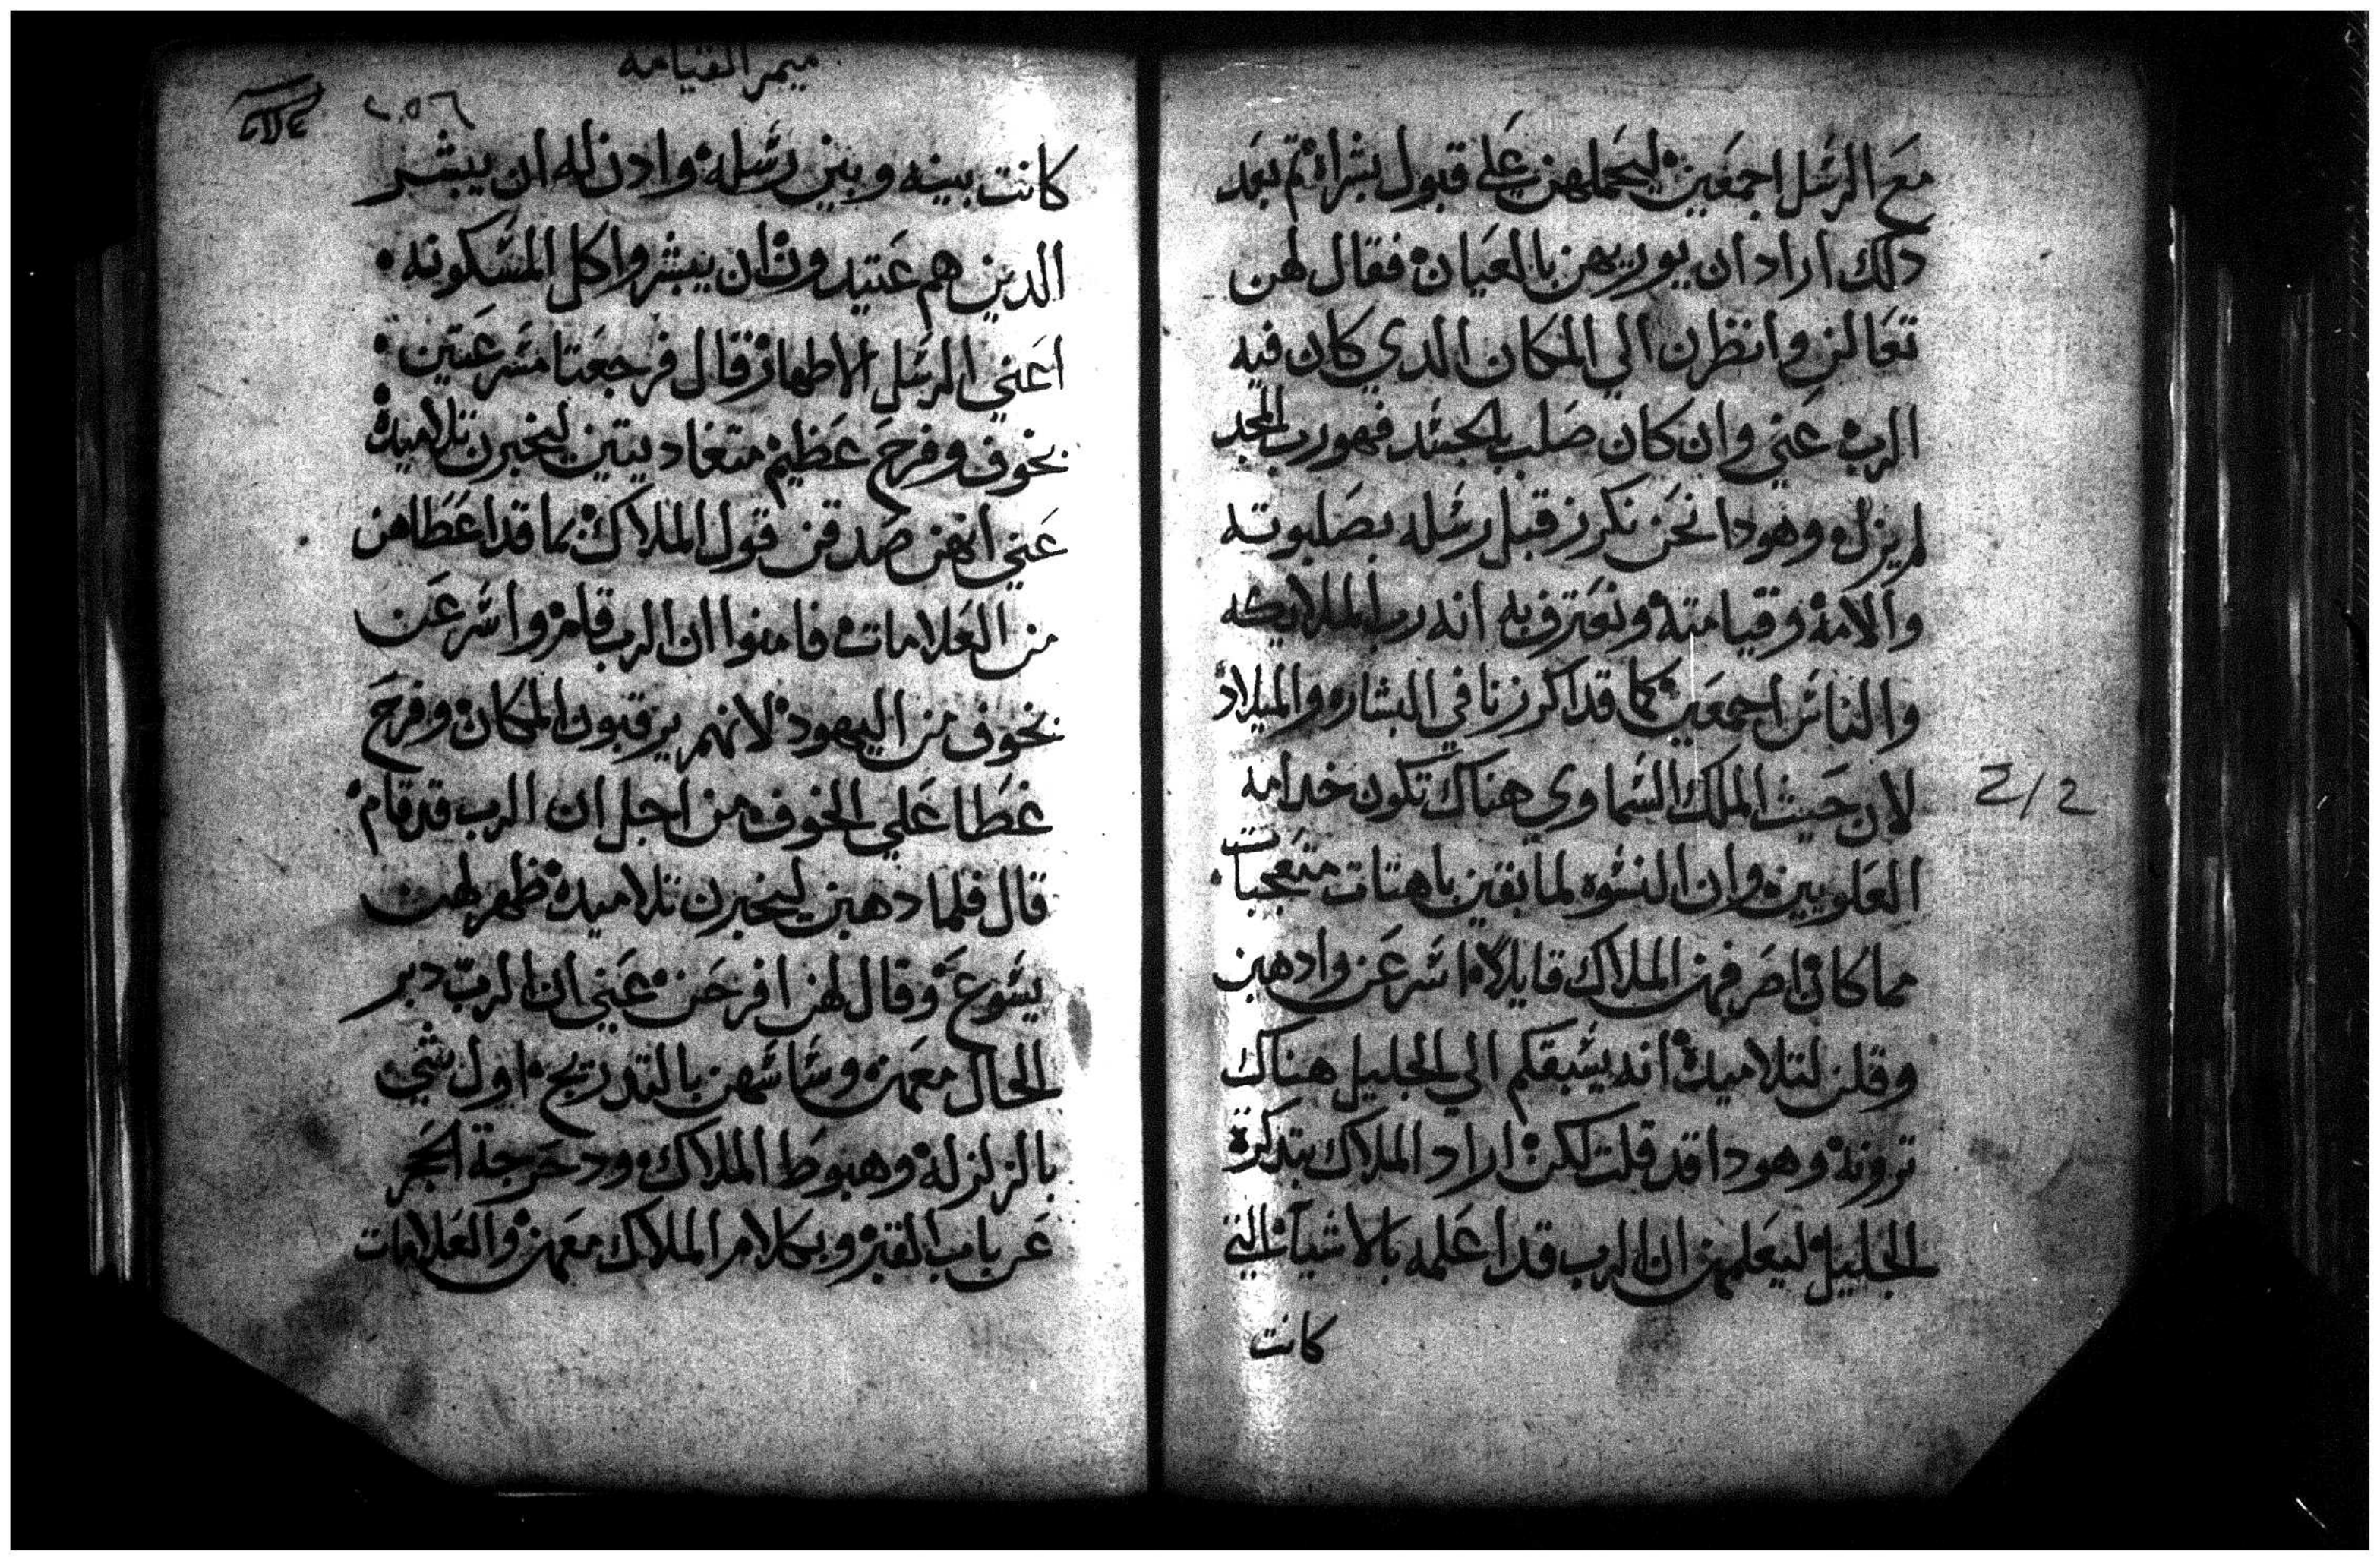 مع الرسل اجمعين ليحملهن علي قبول بشراه تم بعد
دلك اراد ان يوريهن بالعيان فقال لهن
تعالن وانظرن الي المكان الدي كان فيه
الرب عني وان كان صلب بالجسد فهو رب المجد
لم يزل وهودا نحن نكرز قبل رسله بصلبوته
والامه وقيامته ونعترف به انه رب الملايكه
والناس اجمعين كما قد اكرزنا في البشاره والميلاد
لان حيث الملك السماوي هناك تكون خدامه
العلويين وان النسوه لما بقين باهتات متعجبات
مما كان اصرفهن الملاك قايلا اسرعن وادهبن
وقلن لتلاميده انه يسبقكم الي الجليل هناك
ترونه وهودا قد قلت لكن اراد الملاك بتدكرة
الجليل ليعلمهن ان الرب قد اعلمه بالاشيا التي
كانت
2/2
ميمر القيامه
٢٥٦
كانت بينه وبين رسله وادن له ان يبشر
الدين هم عتيدون ان يبشروا كل المسكونه
اعني الرسل الاطهار قال فرجعتا مسرعتين
بخوف وفرح عظيم متغاديتين ليخبرن تلاميده
عني انهن صدقن قول الملاك بما قد اعطاهن
من العلامات فامنوا ان الرب قام واسرعن
بخوف من اليهود لانهم يرقبون المكان وفرح
غطا علي الخوف من اجل ان الرب قد قام
قال فلما دهبن ليخبرن تلاميده ظهر لهن
يسوع وقال لهن افرحن عني ان الرب دبر
الحال معهن وساسهن بالتدريج اول شي
بالزلزله وهبوط الملاك ودحرجة الحجر
عن باب القبر وبكلام الملاك معهن والعلامات